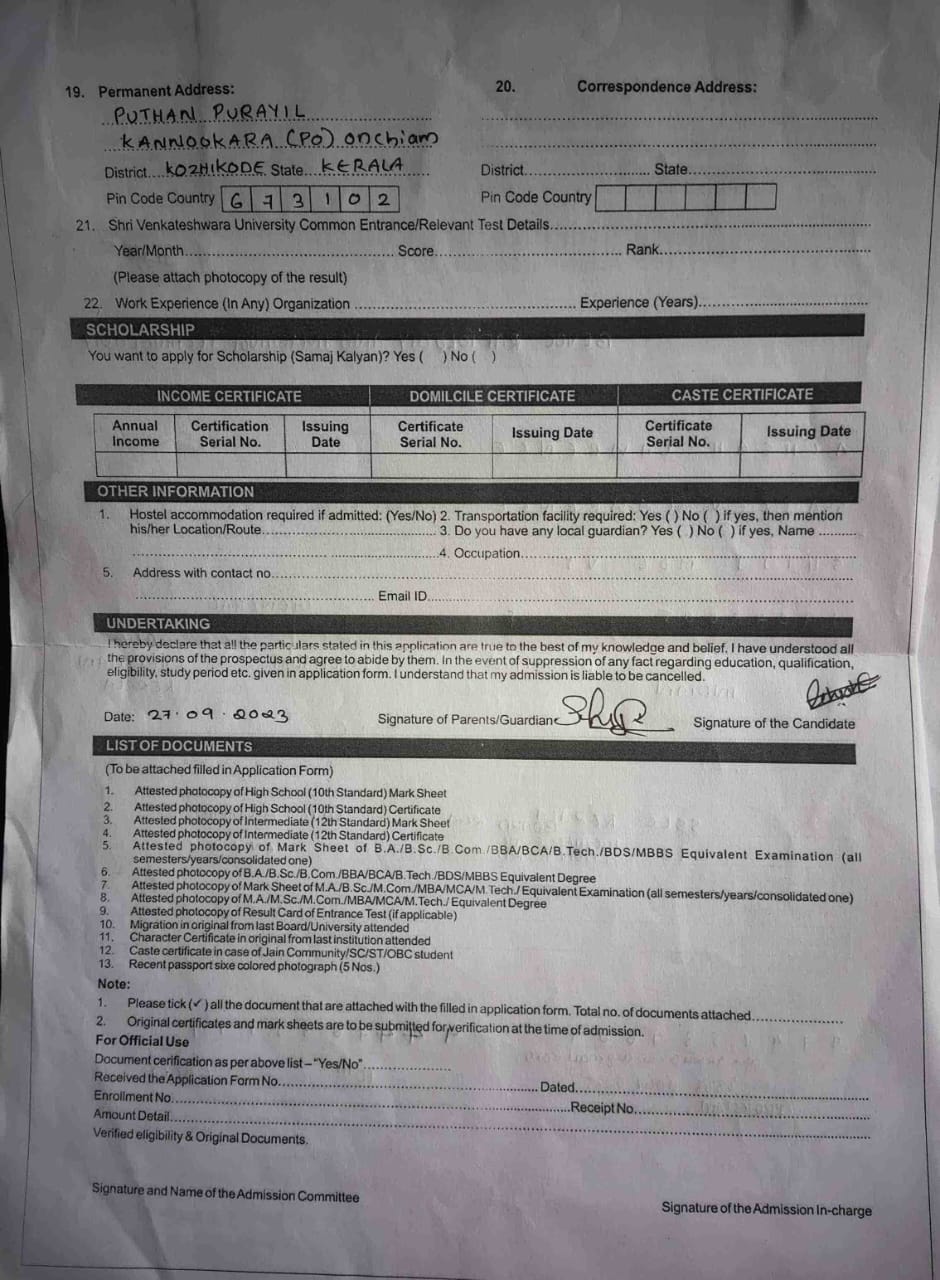 19. Permanent Address: 20. Correspondence Address:
PUTHAN PURAYIL
KANNOOKARA (PO) onchiam
District....KOZHIKODE State....KERALA District.............................. State.............................
Pin Code Country 6 7 3 1 0 2 Pin Code Country
21. Shri Venkateshwara University Common Entrance/Relevant Test Details.............................
Year/Month............................. Score............................. Rank.............................
(Please attach photocopy of the result)
22. Work Experience (In Any) Organization ............................. Experience (Years).............................
SCHOLARSHIP
You want to apply for Scholarship (Samaj Kalyan)? Yes ( ) No ( )
INCOME CERTIFICATE DOMILCILE CERTIFICATE CASTE CERTIFICATE
Annual Income Certification Serial No. Issuing Date Certificate Serial No. Issuing Date Certificate Serial No. Issuing Date
OTHER INFORMATION
1. Hostel accommodation required if admitted: (Yes/No) 2. Transportation facility required: Yes ( ) No ( ) if yes, then mention
his/her Location/Route............................. 3. Do you have any local guardian? Yes ( ) No ( ) if yes, Name ..........
............................. 4. Occupation.............................
5. Address with contact no.............................
............................. Email ID.............................
UNDERTAKING
I hereby declare that all the particulars stated in this application are true to the best of my knowledge and belief. I have understood all
the provisions of the prospectus and agree to abide by them. In the event of suppression of any fact regarding education, qualification,
eligibility, study period etc. given in application form. I understand that my admission is liable to be cancelled.
Date: 27.09.2023 Signature of Parents/Guardian Signature of the Candidate
LIST OF DOCUMENTS
(To be attached filled in Application Form)
1. Attested photocopy of High School (10th Standard) Mark Sheet
2. Attested photocopy of High School (10th Standard) Certificate
3. Attested photocopy of Intermediate (12th Standard) Mark Sheet
4. Attested photocopy of Intermediate (12th Standard) Certificate
5. Attested photocopy of Mark Sheet of B.A./B.Sc./B.Com./BBA/BCA/B.Tech./BDS/MBBS Equivalent Examination (all
semesters/years/consolidated one)
6. Attested photocopy of B.A./B.Sc./B.Com./BBA/BCA/B.Tech./BDS/MBBS Equivalent Degree
7. Attested photocopy of Mark Sheet of M.A./B.Sc./M.Com./MBA/MCA/M.Tech./ Equivalent Examination (all semesters/years/consolidated one)
8. Attested photocopy of M.A./M.Sc./M.Com./MBA/MCA/M.Tech./ Equivalent Degree
9. Attested photocopy of Result Card of Entrance Test (if applicable)
10. Migration in original from last Board/University attended
11. Character Certificate in original from last institution attended
12. Caste certificate in case of Jain Community/SC/ST/OBC student
13. Recent passport sixe colored photograph (5 Nos.)
Note:
1. Please tick (✓) all the document that are attached with the filled in application form. Total no. of documents attached....................
2. Original certificates and mark sheets are to be submitted for verification at the time of admission.
For Official Use
Document cerification as per above list – "Yes/No"....................
Received the Application Form No............................. Dated.............................
Enrollment No............................. Receipt No.............................
Amount Detail.............................
Verified eligibility & Original Documents.
Signature and Name of the Admission Committee
Signature of the Admission In-charge